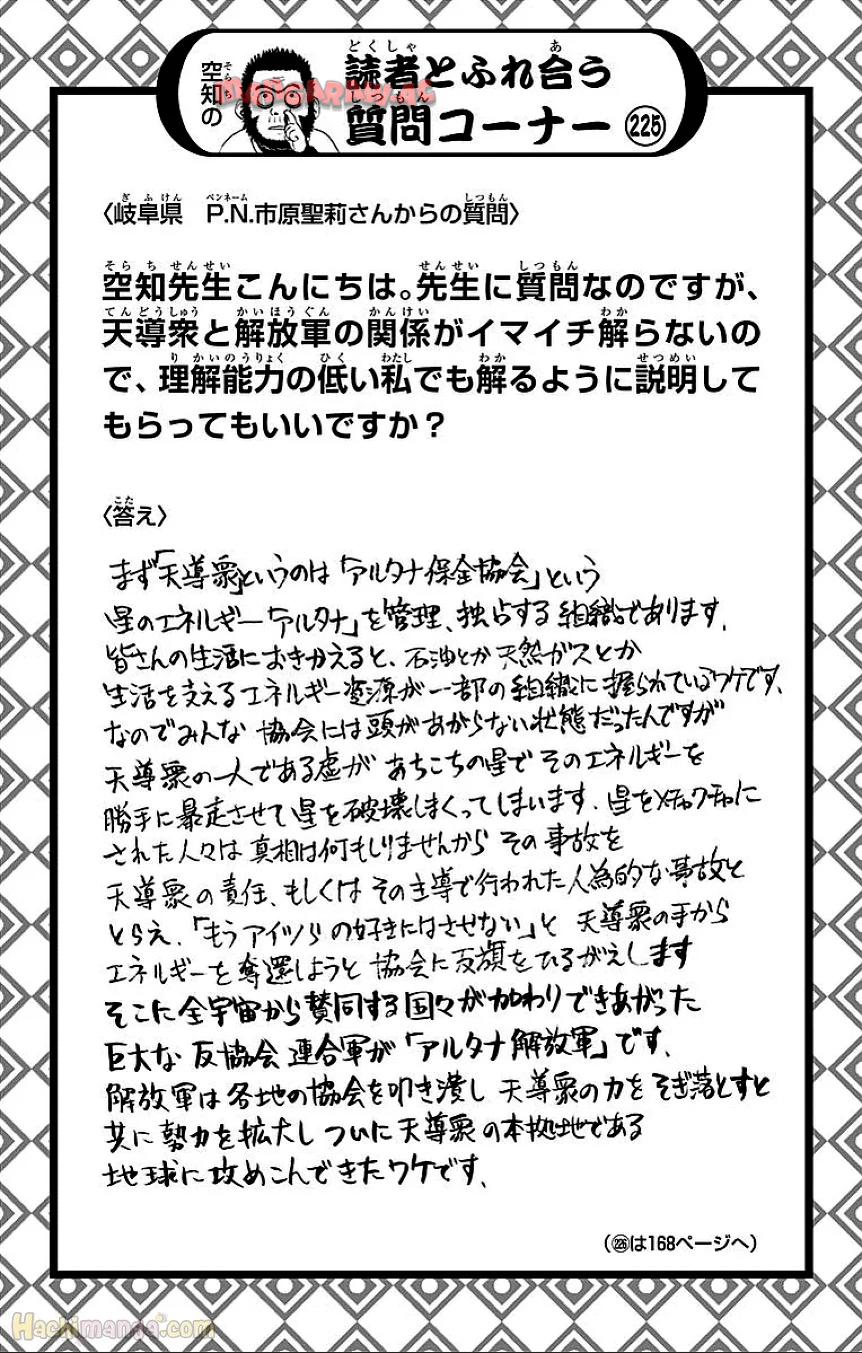 空知の
読者とふれ合う
質問コーナー 225
〈岐阜県 P.N.市原聖莉さんからの質問〉
空知先生こんにちは。先生に質問なのですが、
天導衆と解放軍の関係がイマイチ解らないの
で、理解能力の低い私でも解るように説明して
もらってもいいですか？
〈答え〉
まず「天導衆」というのは「アルタナ保全協会」という
星のエネルギー「アルタナ」を管理、独占する組織であります。
皆さんの生活におきかえると、石油とか天然ガスとか
生活を支えるエネルギー資源が一部の組織に握られているワケです。
なのでみんな 協会には頭があがらない状態だったんですが
天導衆の一人である虚が あちこちの星で そのエネルギーを
勝手に暴走させて星を破壊しまくってしまいます。星をメチャクチャに
された人々は 真相は何もしりませんから その事故を
天導衆の責任、もしくは その主導で行われた人為的な事故と
とらえ、「もうアイツらの好きにはさせない」と 天導衆の手から
エネルギーを奪還しようと 協会に反旗をひるがえします
そこに全宇宙から賛同する国々が加わりできあがった
巨大な 反協会 連合軍が「アルタナ解放軍」です。
解放軍は各地の協会を叩き潰し 天導衆の力を そぎ落とすと
共に 勢力を拡大し ついに天導衆の本拠地である
地球に攻めこんできたワケです。
（226は168ページへ）
Hachimanda.com